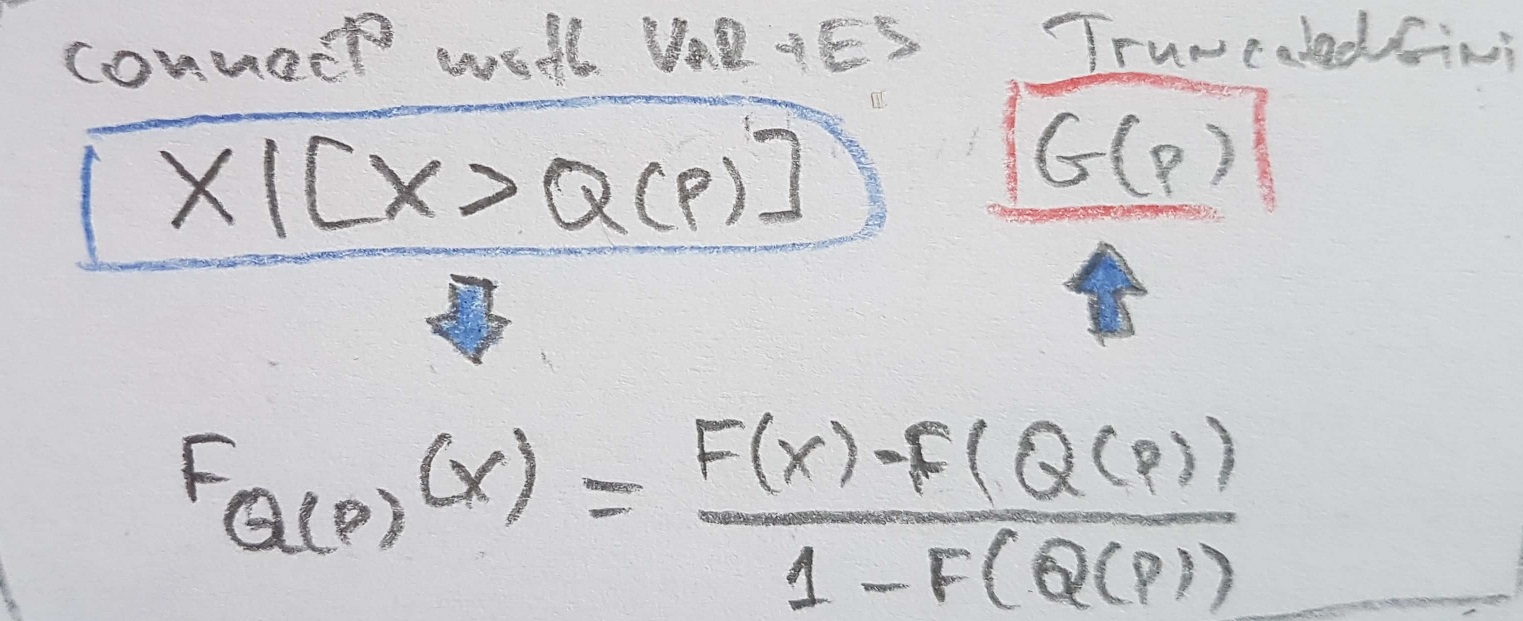 connect with VAR + ES
Truncated Gini
X|[X>Q(P)]
G(p)
F_Q(p)(x) = F(x)-F(Q(p)) / 1-F(Q(p))